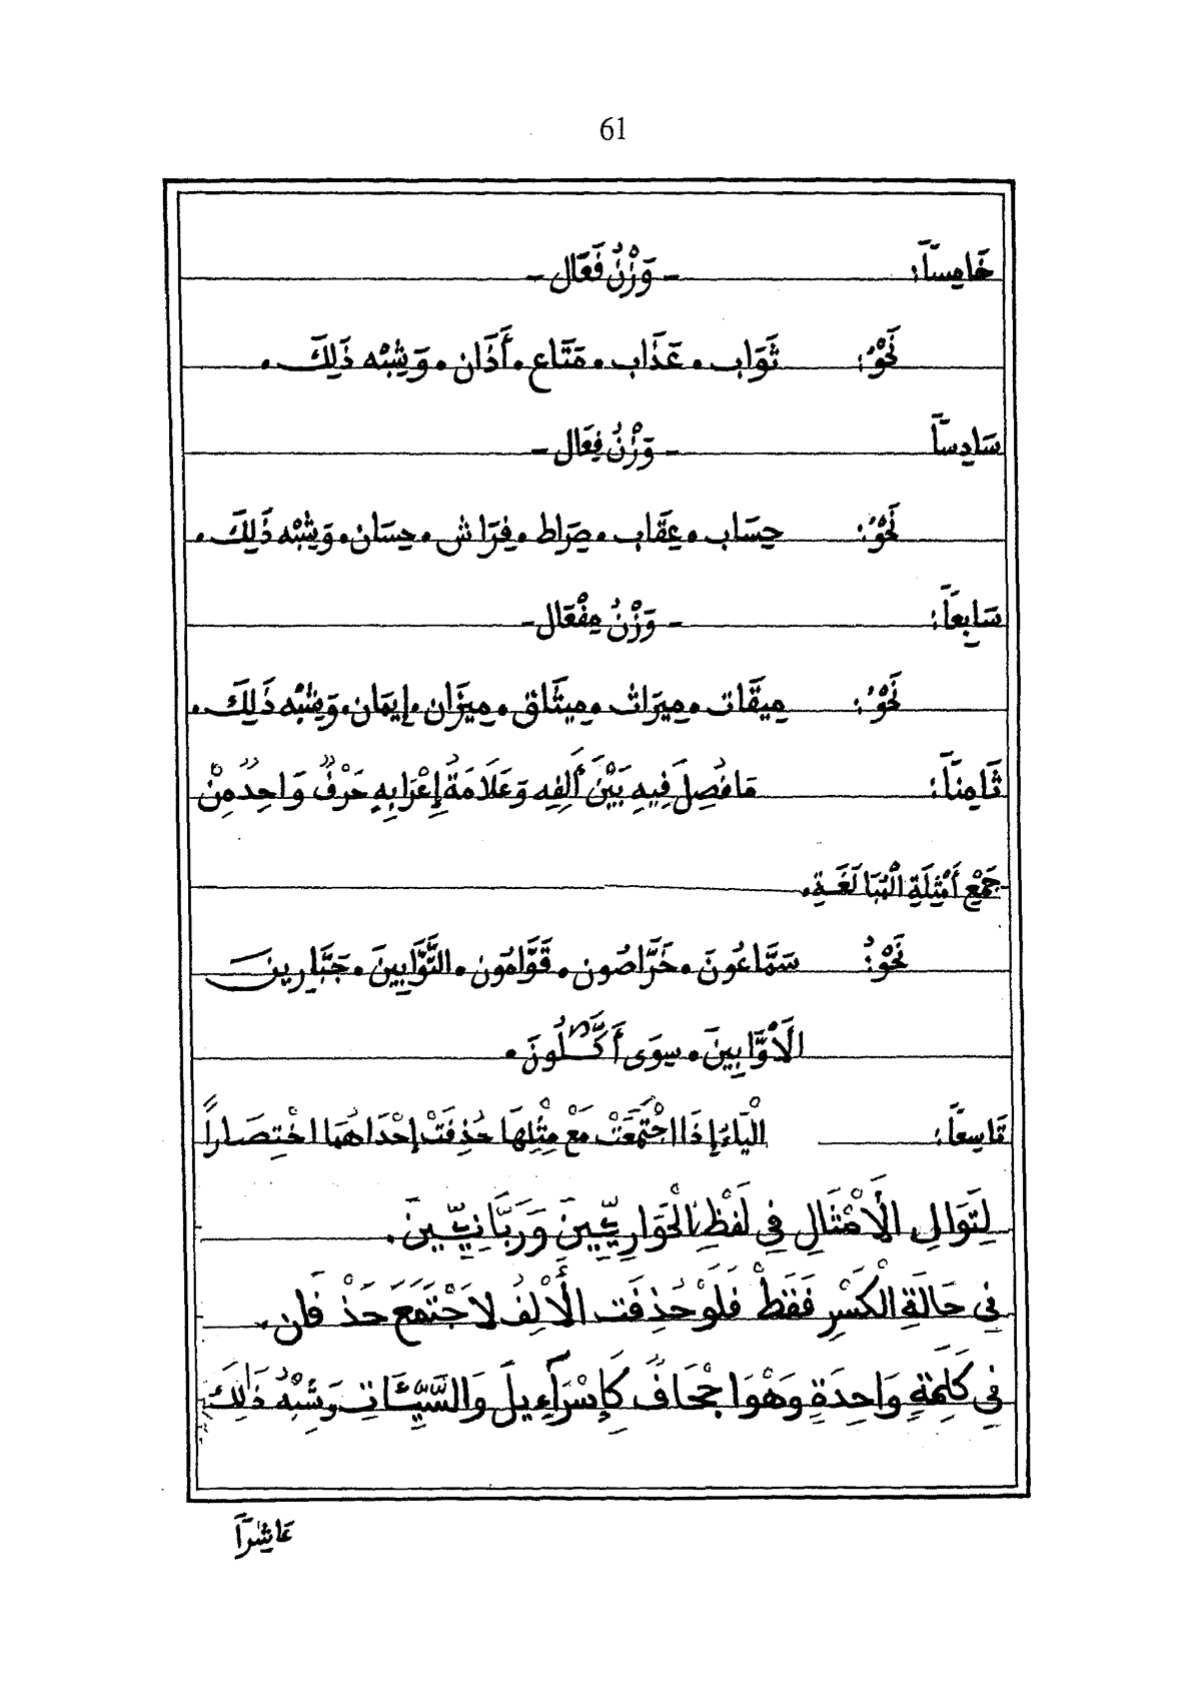 61
خَامِساً: - وَزْنُ فَعَال -
نَحْوُ: ثَوَاب. عَذَاب. مَتَاع. أَذَان. وَشِبْه ذَلِكَ.
سَادِساً - وَزْنُ فِعَال -
نَحْوُ: حِسَاب. عِقَاب. صِرَاط. فِرَاش. حِسَان. وَشِبْه ذَلِكَ.
سَابِعاً: - وَزْنُ مِفْعَال -
نَحْوُ: مِيقَات. مِيرَاث. مِيثَاق. مِيزَان. إِيمَان. وَشِبْه ذَلِكَ.
ثَامِناً: مَا فُصِلَ فِيهِ بَيْنَ أَلِفِه وَعَلَامَةُ إِعْرَابِهِ حَرْفٌ وَاحِدٌ مِنْ
جَمْعِ أَمْثِلَةِ الْمُبَالَغَةِ.
نَحْوُ: سَمَّاعُونَ. خَرَّاصُون. قَوَّامُون. التَّوَّابِينَ. جَبَّارِين
الْأَوَّابِينَ. سِوَى أَكَّـٰلُونَ.
تَاسِعاً: الْيَاءُ إِذَا اجْتَمَعَتْ مَعْ مِثْلِهَا حُذِفَتْ إِحْدَاهُمَا اخْتِصَاراً
لِتَوَالِ الْأَمْثَالِ فِي لَفْظِ الْحَوَارِيِّينَ وَرَبَّانِيِّينَ.
فِي حَالَةِ الْكَسْرِ فَقَطْ فَلَوْ حُذِفَت الْأَلِفُ لَاجْتَمَعَ حَذْفَان.
فِي كَلِمَةٍ وَاحِدَةٍ وَهْوَ اجْحَافٌ كَإِسْرَآءِيلَ وَالسَّيِّئَاتِ وَشِبْهُ ذَلِكَ
عَاشِراً